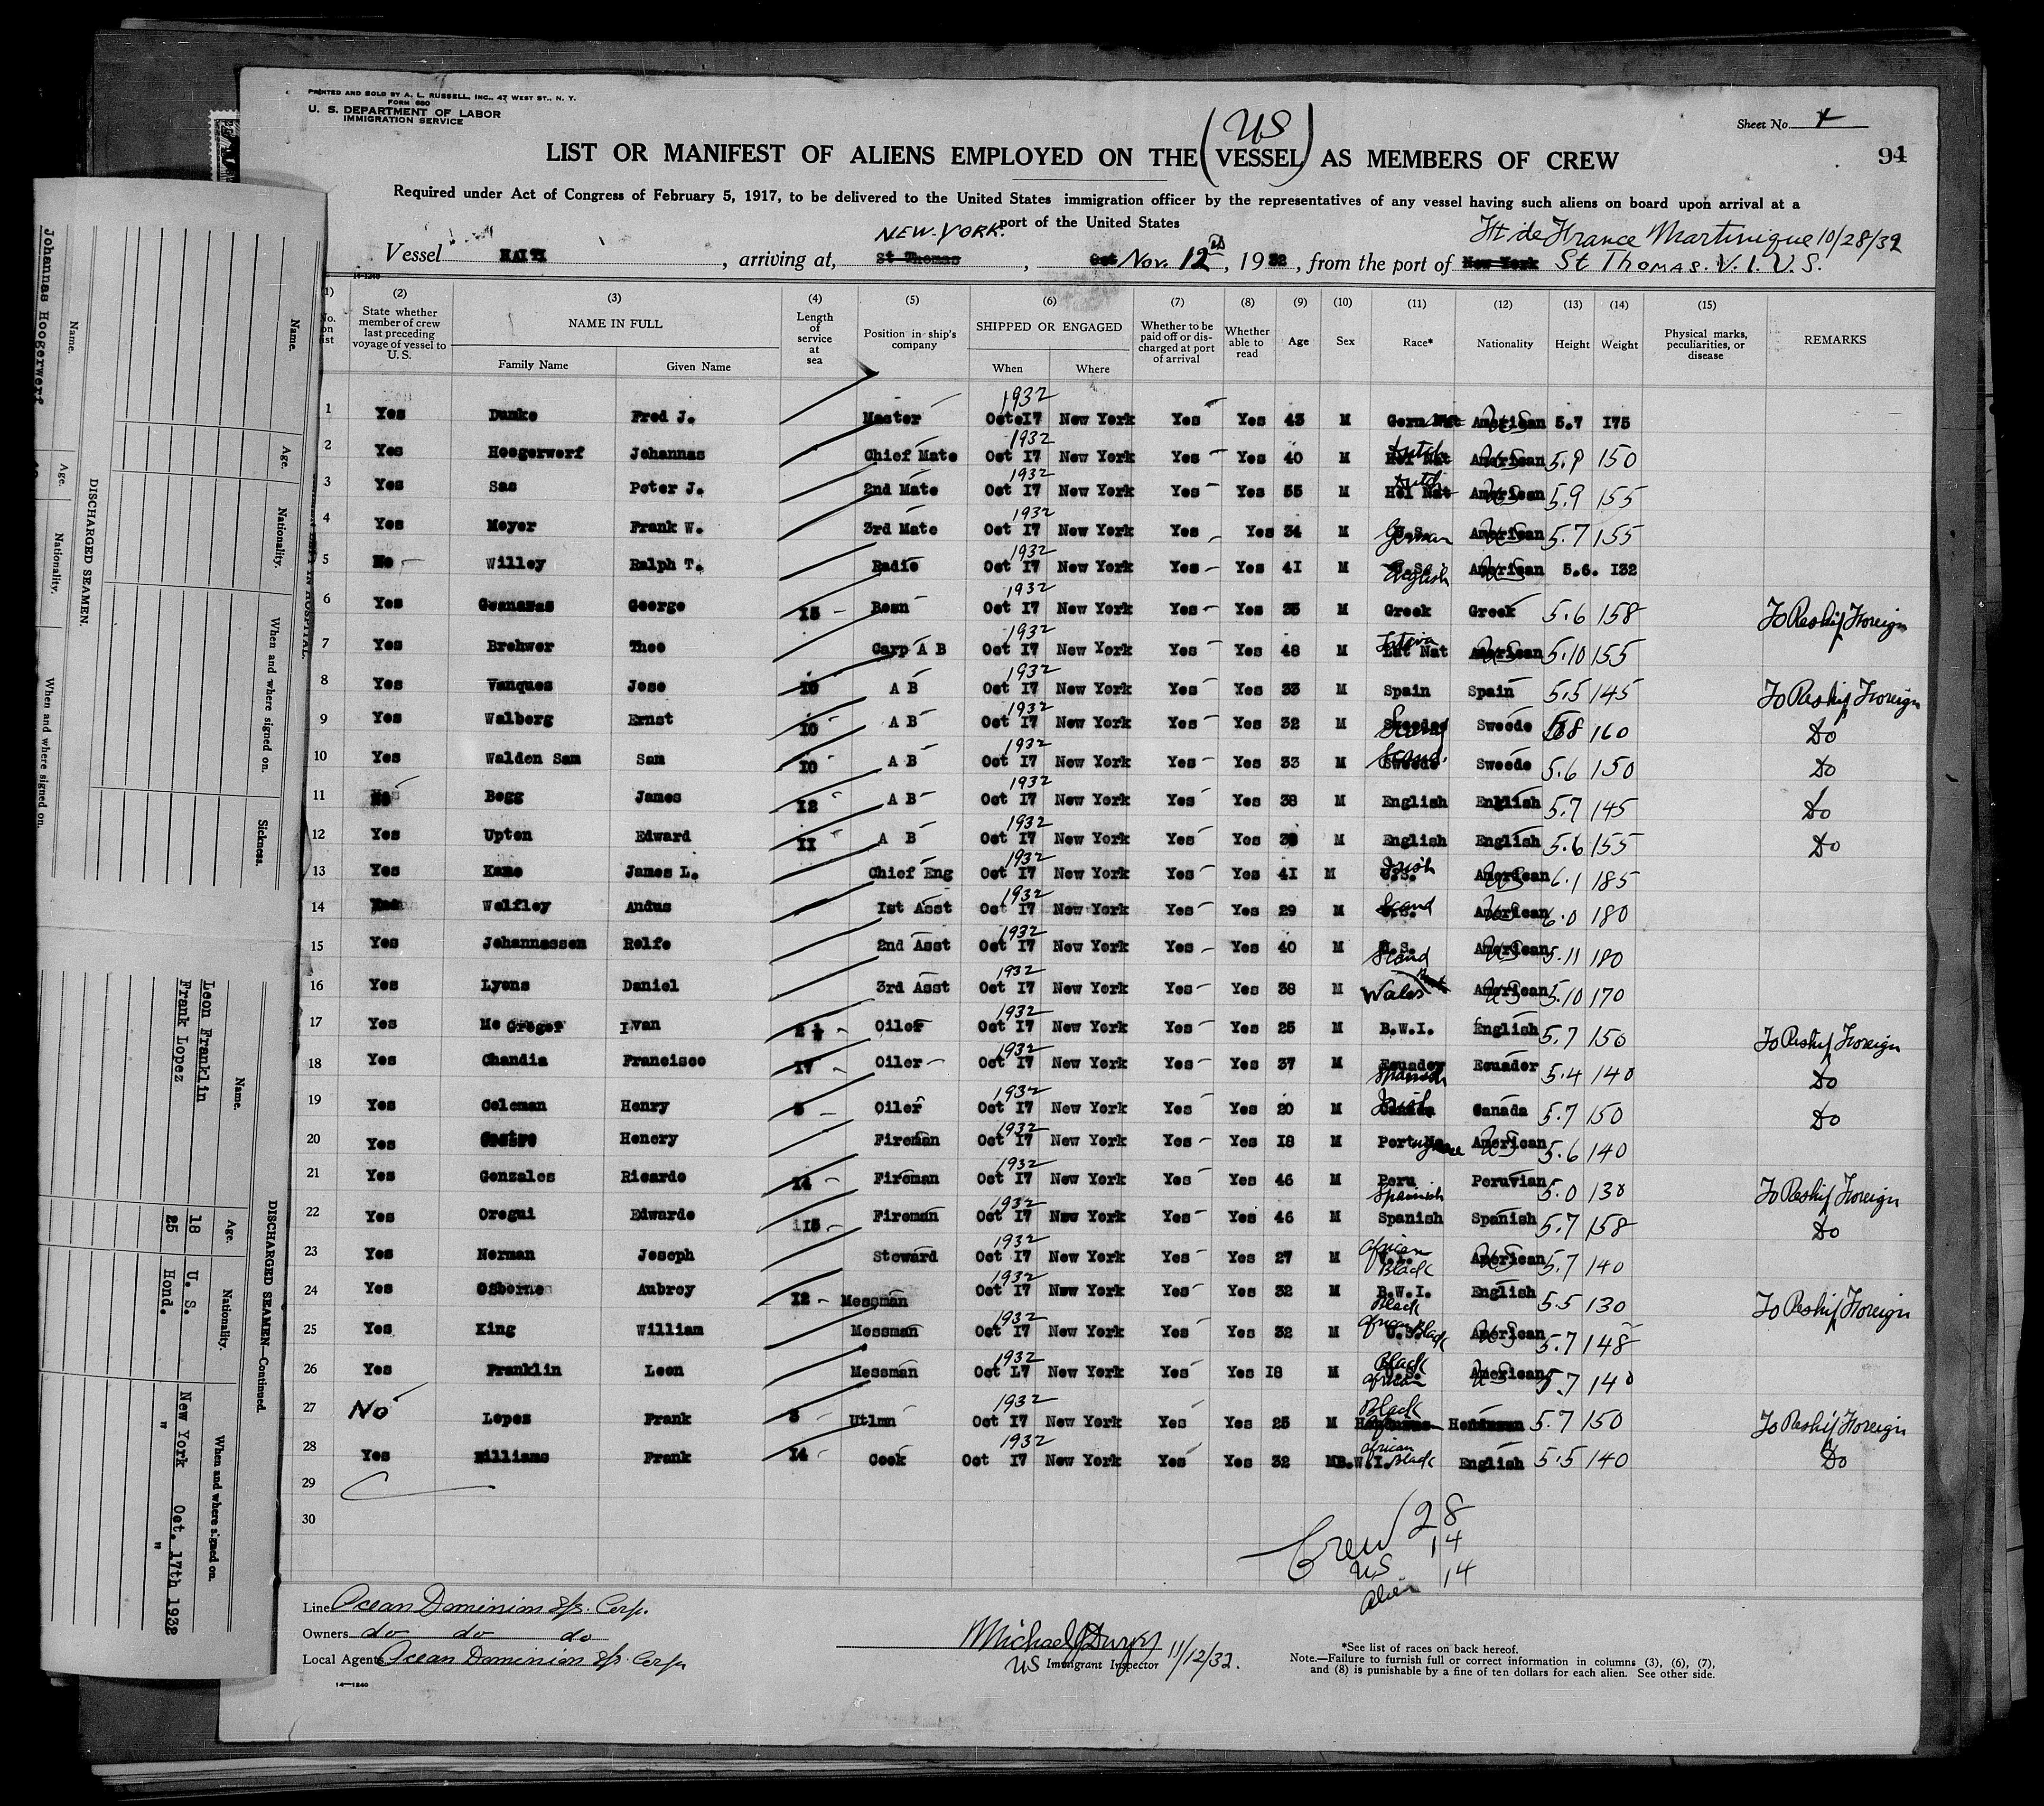 PRINTED AND SOLD BY A. L. RUSSELL, INC., 47 WEST ST., N. Y.
FORM 680
U. S. DEPARTMENT OF LABOR
IMMIGRATION SERVICE
Sheet No. 4
(US)
LIST OR MANIFEST OF ALIENS EMPLOYED ON THE (VESSEL) AS MEMBERS OF CREW
94
Required under Act of Congress of February 5, 1917, to be delivered to the United States immigration officer by the representatives of any vessel having such aliens on board upon arrival at a
port of the United States
NEW-YORK. Ft de France Martinique 10/28/32
Vessel HAITI, arriving at, St Thomas, Oct Nov. 12th, 1932, from the port of New York St THOMAS. V.I.U.S.
14-1240
(1) (2) (3) (4) (5) (6) (7) (8) (9) (10) (11) (12) (13) (14) (15)
No. on list State whether member of crew last preceding voyage of vessel to U. S. NAME IN FULL Family Name Given Name Length of service at sea Position in ship's company SHIPPED OR ENGAGED When Where Whether to be paid off or discharged at port of arrival Whether able to read Age Sex Race* Nationality Height Weight Physical marks, peculiarities, or disease REMARKS
1 Yes Danke Fred J. Master 1932 Oct 17 New York Yes Yes 43 M Germ Nat American US 5.7 175
2 Yes Hoogerwerf Johannas Chief Mate 1932 Oct 17 New York Yes Yes 40 M Hol Nat Dutch American US 5.9 150
3 Yes Sas Peter J. 2nd Mate 1932 Oct 17 New York Yes Yes 55 M Hol Nat Dutch American US 5.9 155
4 Yes Meyer Frank W. 3rd Mate 1932 Oct 17 New York Yes Yes 34 M U.S. German American US 5.7 155
5 No Willey Ralph T. Radio 1932 Oct 17 New York Yes Yes 41 M U.S. English American US 5.6. 132
6 Yes George 15 Bosn 1932 Oct 17 New York Yes Yes 35 M Greek Greek 5.6 158 To Reship Foreign
7 Yes Brehwer Theo Carp A B 1932 Oct 17 New York Yes Yes 48 M Lat Nat American US 5.10 155
8 Yes Vanques Jose 10 A B 1932 Oct 17 New York Yes Yes 33 M Spain Spain 5.5 145 To Reship Foreign
9 Yes Walberg Ernst 10 A B 1932 Oct 17 New York Yes Yes 32 M Sweden Scand Sweede 5.8 160 Do
10 Yes Walden Sam Sam 10 A B 1932 Oct 17 New York Yes Yes 33 M Sweede Scand. Sweede 5.6 150 Do
11 Begg James 12 A B 1932 Oct 17 New York Yes Yes 38 M English English 5.7 145 Do
12 Yes Upton Edward 11 A B 1932 Oct 17 New York Yes Yes M English English 5.6 155 Do
13 Yes Kane James L. Chief Eng 1932 Oct 17 New York Yes Yes 41 M U.S. Irish American US 6.1 185
14 Welfley Andus 1st Asst 1932 Oct 17 New York Yes Yes 29 M U.S. Scand American US 6.0 180
15 Yes Johannessen Rolfe 2nd Asst 1932 Oct 17 New York Yes Yes 40 M U.S. Scand American US 5.11 180
16 Yes Lyons Daniel 3rd Asst 1932 Oct 17 New York Yes Yes 38 M Wales American US 5.10 170
17 Yes Mc Gregor Ivan 2 ½ Oiler 1932 Oct 17 New York Yes Yes 25 M B.W.I. English 5.7 150 To Reship Foreign
18 Yes Chandia Francisco 17 Oiler 1932 Oct 17 New York Yes Yes 37 M Ecuador Spanish Ecuador 5.4 140 Do
19 Yes Coleman Henry 3 Oiler 1932 Oct 17 New York Yes Yes 20 M Canada Irish Canada 5.7 150 Do
20 Yes Castro Henory Fireman 1932 Oct 17 New York Yes Yes 18 M Portuguese American US 5.6 140
21 Yes Gonzales Ricardo 14 Fireman 1932 Oct 17 New York Yes Yes 46 M Peru Spanish Peruvian 5.0 130 To Reship Foreign
22 Yes Oregui Edwardo 15 Fireman 1932 Oct 17 New York Yes Yes 46 M Spanish Spanish 5.7 158 Do
23 Yes Norman Joseph Steward 1932 Oct 17 New York Yes Yes 27 M V.I. African Black American US 5.7 140
24 Yes Osborne Aubrey 12 Messman 1932 Oct 17 New York Yes Yes 32 M B.W.I. Black English 5.5 130 To Reship Foreign
25 Yes King William Messman 1932 Oct 17 New York Yes Yes 32 M U.S. African Black American US 5.7 148
26 Yes Franklin Leon Messman 1932 Oct L7 New York Yes Yes 18 M U.S. Black African American US 5.7 140
27 No Lopez Frank 3 Utlmn 1932 Oct 17 New York Yes Yes 25 M Black 5.7 150 To Reship Foreign
28 Yes Williams Frank 14 Cook 1932 Oct 17 New York Yes Yes 32 M B.W.I. African Black English 5.5 140 Do
29
30
Crew 28
US 14
Alien 14
Line Ocean Dominion S/S. Corp.
Owners do do do
Local Agents Ocean Dominion S/S. Corp
Michael J Dwyer 11/12/32.
US Immigrant Inspector
*See list of races on back hereof.
Note.—Failure to furnish full or correct information in columns (3), (6), (7),
and (8) is punishable by a fine of ten dollars for each alien. See other side.
14—1240
DISCHARGED SEAMEN.
Name. Age. Nationality. When and where signed on.
Johannas Hoogerwerf
Name. Age. Nationality. When and where signed on. Sickness.
IN HOSPITAL.
DISCHARGED SEAMEN—Continued.
Name. Age. Nationality. When and where signed on.
Leon Franklin 18 U. S. New York Oct. 17th 1932
Frank Lopez 25 Hond. " "